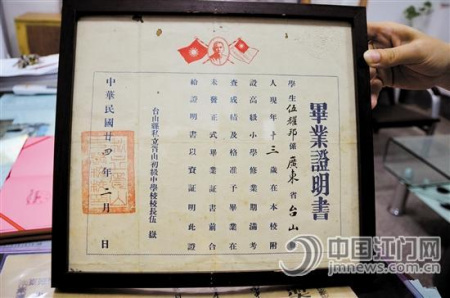 畢業證明書
學生伍耀邦係廣東省台山
人現年十三歲在本校附
設高級小學修業期滿考
查成績及格准予畢業在
未發正式畢業證書前合
給證明書以資証明此證
台山縣私立育山初級中學校校長伍
中華民國廿四年二月日
中国江门网
jmnews.com.cn